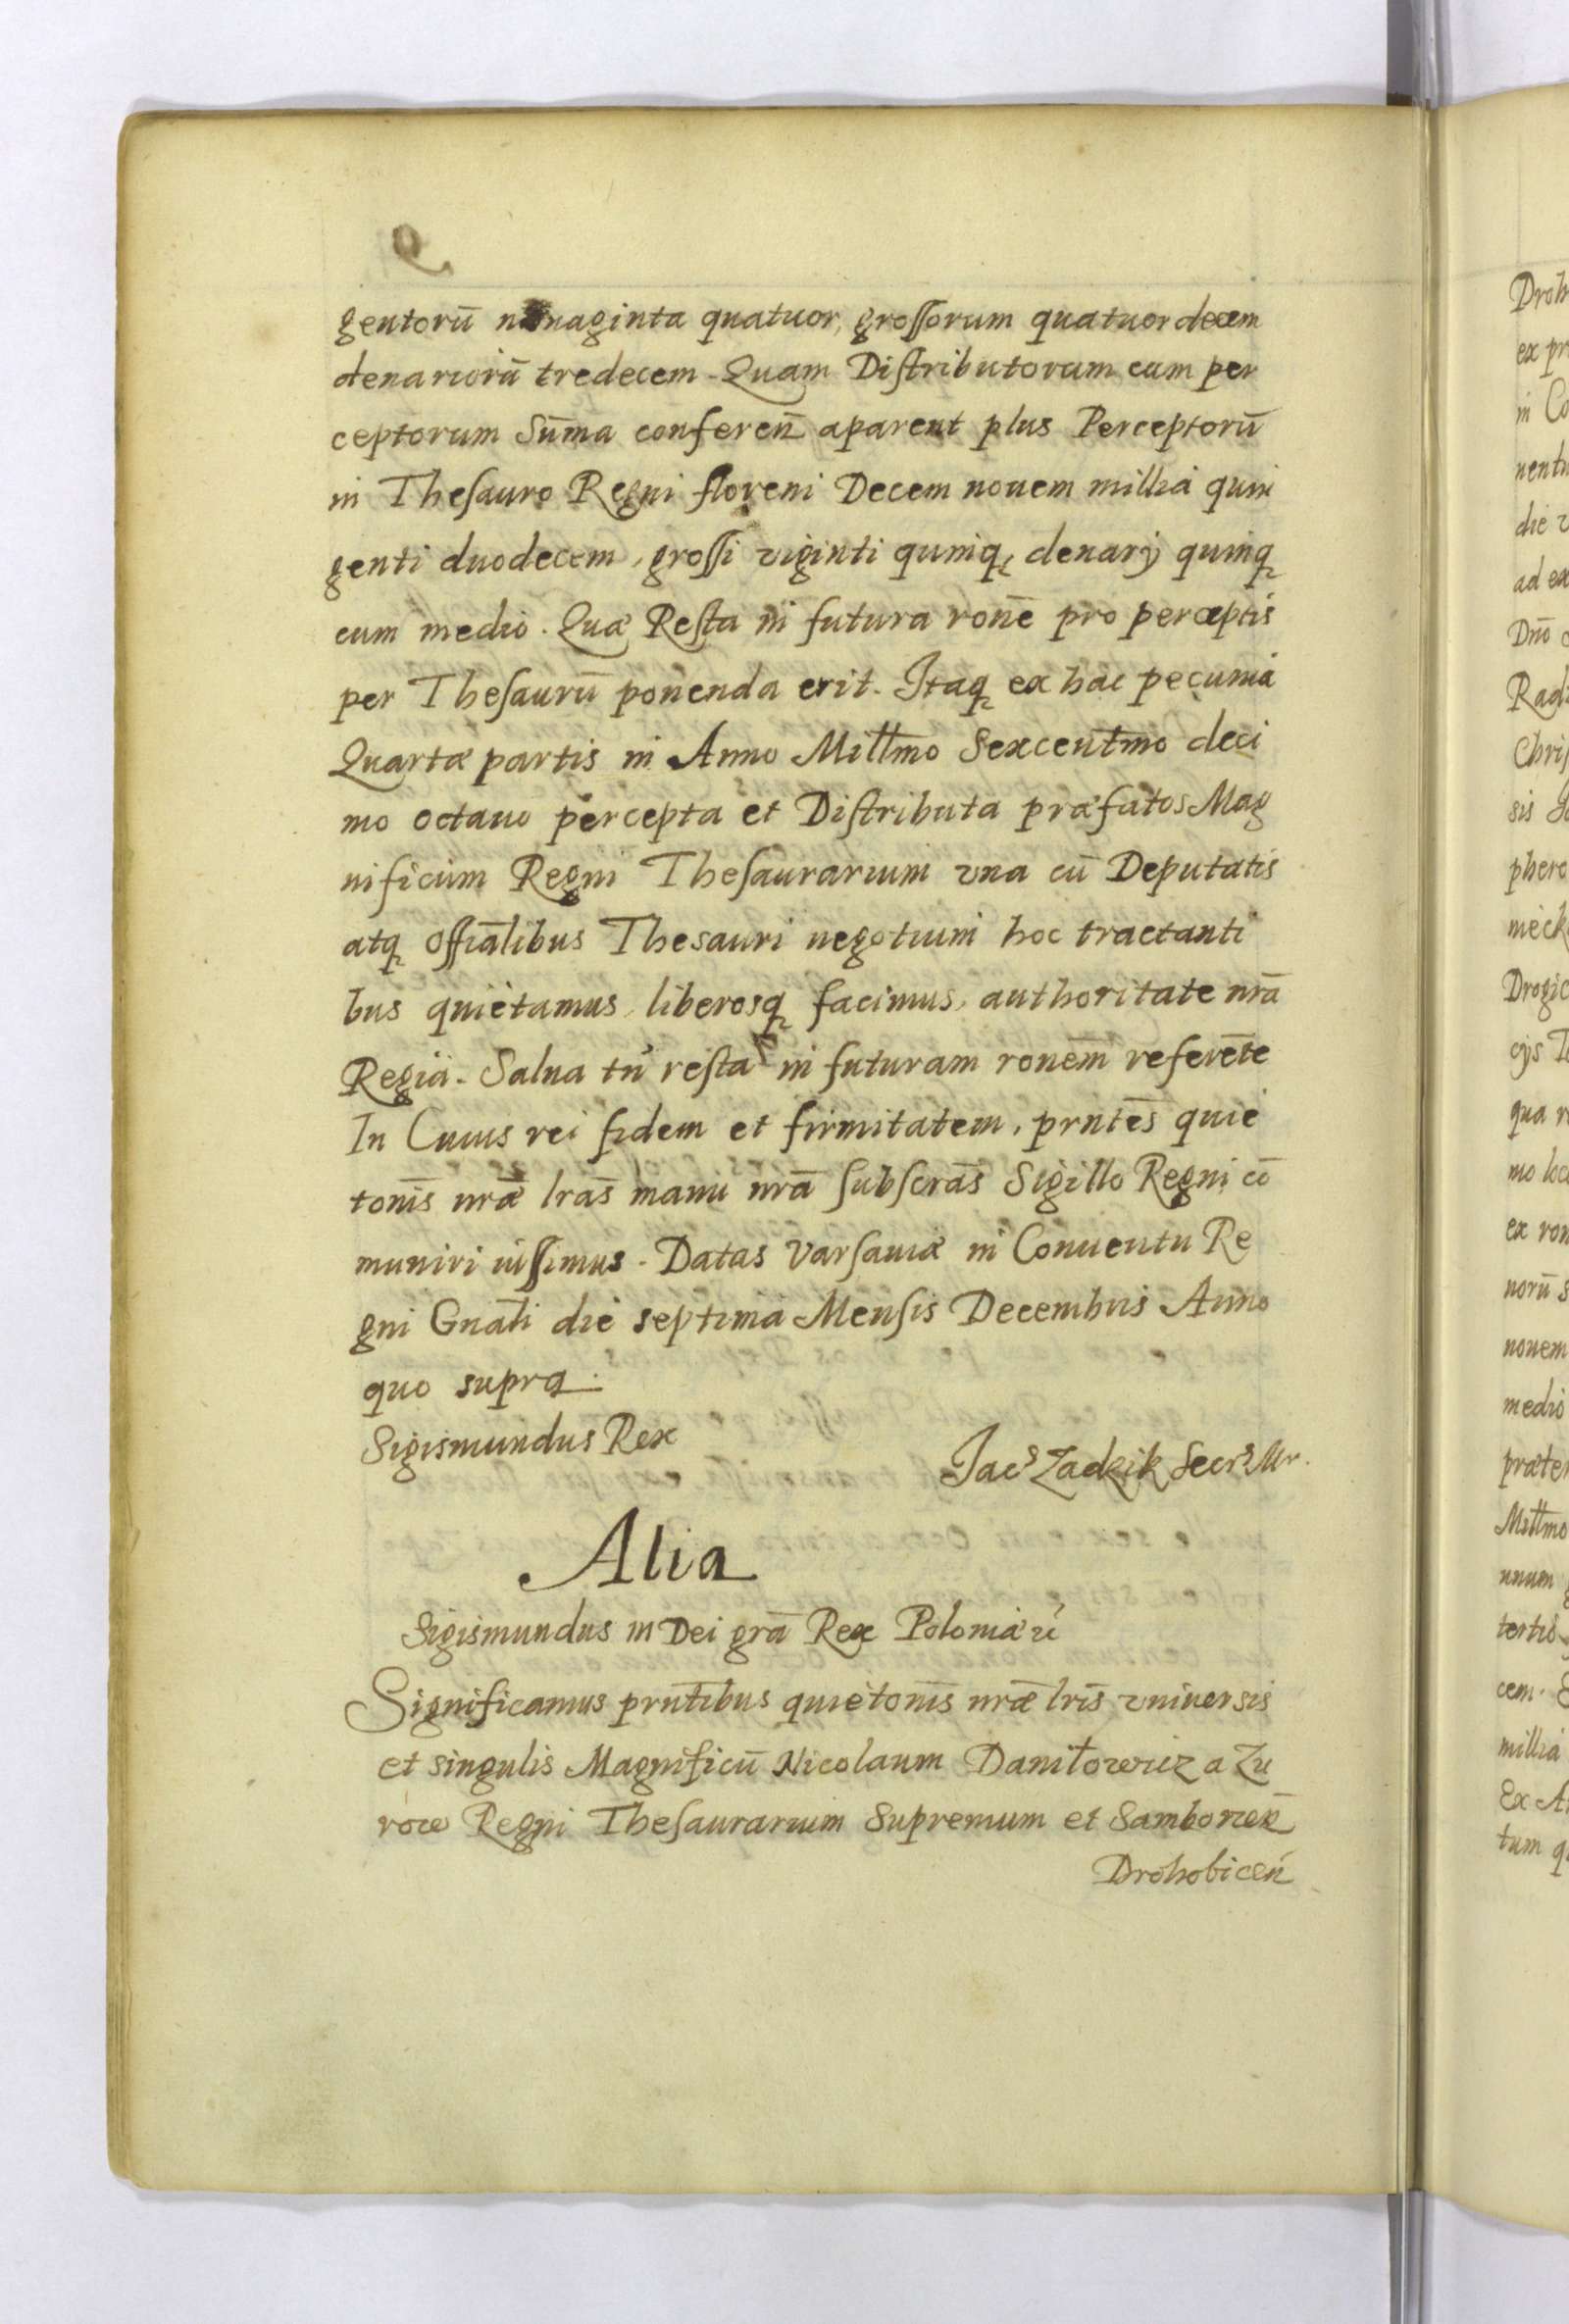 gentorū nonaginta quatuor, groſſorum quatuor decem
denariorū tredecem. Quam Diſtributorum cum per
ceptorum Sūma conferen̄ aparent plus Perceptorū
in Theſauro Regni floreni Decem nouem millia quin
genti duodecem, groſſi viginti quinq, denarij quinq
cum medio. Quæ Reſta in futura ronē pro perceptis
per Theſaurū ponenda erit. Itaq ex hac pecunia
Quartæ partis in Anno Millmo Sexcentmo deci
mo octauo percepta et Diſtributa præfatos Mag
nificum Regni Theſaurarium vna cū Deputatis
atq Offiālibus Thesauri negotium hoc tractanti
bus quietamus, liberosq facimus, authoritate nrā
Regia. Salua tn̄ reſta in futuram ronem̄ referēte
In Cuius rei fidem et firmitatem, prntēs quie
tonīs nrǣ lrās manu nrā ſubſcrās Sigillo Regni cō
muniri iuſſimus. Datas Varſauiæ in Conuentu Re
gni Gnāli die septima Menſis Decembris Anno
quo supra.
Sigismundus Rex
Jacs Zadzik Secrs Mr.
Alia
Sigismundus III Dei grā Rex Poloniæ
Significamus prntībus quietonīs nrǣ lrīs vniversis
et singulis Magnificū Nicolaum Daniłowicz a Zu
row Regni Theſaurarium Supremum et Samborien̄
Drohobicen̄
Droh
ex pr
in Co
uentu
die v
ad ex
Dnō
Radz
Chriſ
sis
phero
nieck
Drogic
cijs
qua r
mo loc
ex ron
norū s
nouem
medio
præter
Millmo
unum
tertio
cem.
millia
Ex A
tum q